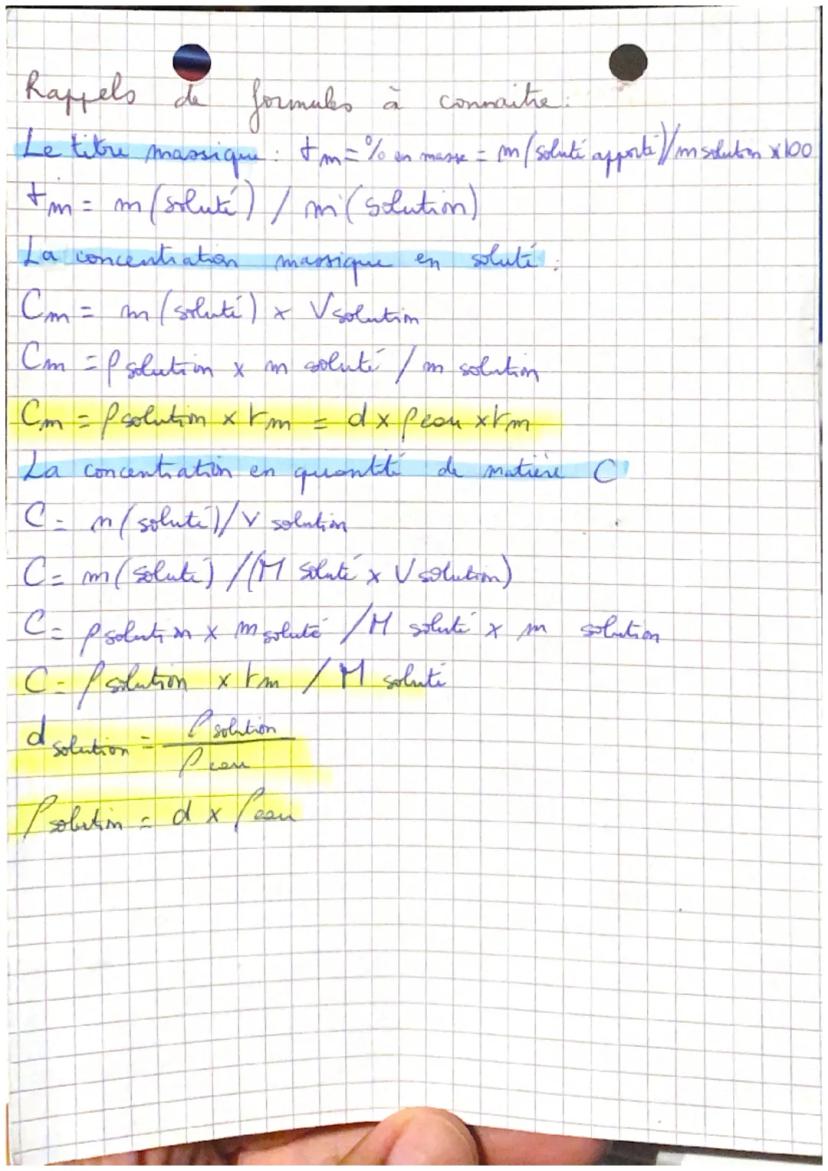 Rappels de formules à connaitre :
Le titre massique : tm = % en masse = m (soluté apporté)/m solution x 100
tm = m (soluté) / m (solution)
La concentration massique en soluté :
Cm = m (soluté) x V solution
Cm = ρ solution x m soluté / m solution
Cm = ρ solution x tm = d x ρ eau x tm
La concentration en quantité de matière C
C = n (soluté)/V solution
C = m (soluté) /(M soluté x V solution)
C = ρ solution x m soluté / M soluté x m solution
C = ρ solution x tm / M soluté
d solution = ρ solution
ρ eau
ρ solution = d x ρ eau